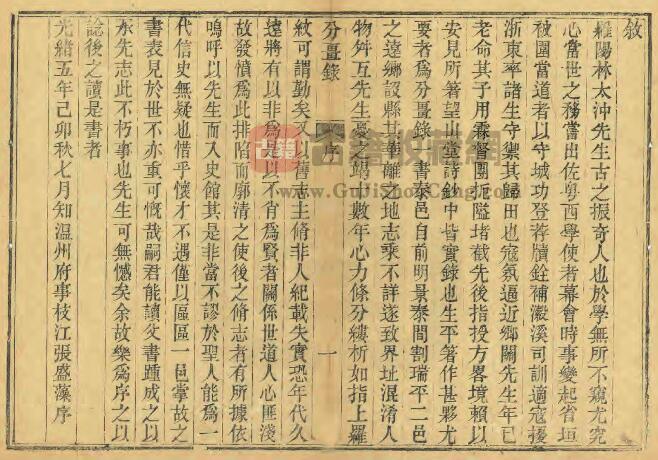 敘
羅陽林太沖先生古之振奇人也於學無所不窺尤究
心當世之務嘗出佐粵西學使者幕會時事變起省垣
被圍當道者以守城功登荐牘銓補瀫溪司訓適寇擾
浙東率諸生守禦其歸田也寇氛逼近鄉關先生年已
老命其子用霖督團扼隘堵截先後指授方畧境賴以
安見所著望山堂詩鈔中皆實錄也生平著作甚夥尤
要者為分疆錄一書泰邑自前明景泰間割瑞平二邑
之遠鄉設縣其華離之地志乘不詳遂致界址混淆人
物舛互先生憂之竭十數年心力條分縷析如指上羅
分疆錄 序 一
紋可謂勤矣又以舊志主脩非人紀載失實恐年代久
遠將有以非為是以不肖為賢者關係世道人心匪淺
故發憤為此排陷而廓清之使後之脩志者有所據依
嗚呼以先生而入史館其是非當不謬於聖人能為一
代信史無疑也惜乎懷才不遇僅以區區一邑掌故之
書表見於世不亦重可慨哉嗣君能讀父書踵成之以
承先志此不朽事也先生可無憾矣余故樂為序之以
諗後之讀是書者
光緒五年己卯秋七月知温州府事枝江張盛藻序
古籍
古籍收藏网
www.GuJiShouCang.net